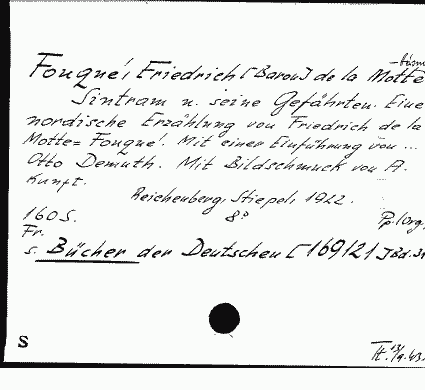 Fouqué, Friedrich [Baron] de la Motte
Sintram u. seine Gefährten. Eine
nordische Erzählung von Friedrich de la
Motte=Fouqué. Mit einer Einführung von ...
Otto Demuth. Mit Bildschmuck von A.
Kunft.
Reichenberg: Stiepel, 1922.
160 S. 8° Pp. lorg.
Fr.
s. Bücher der Deutschen [169121] Bd. 31
S